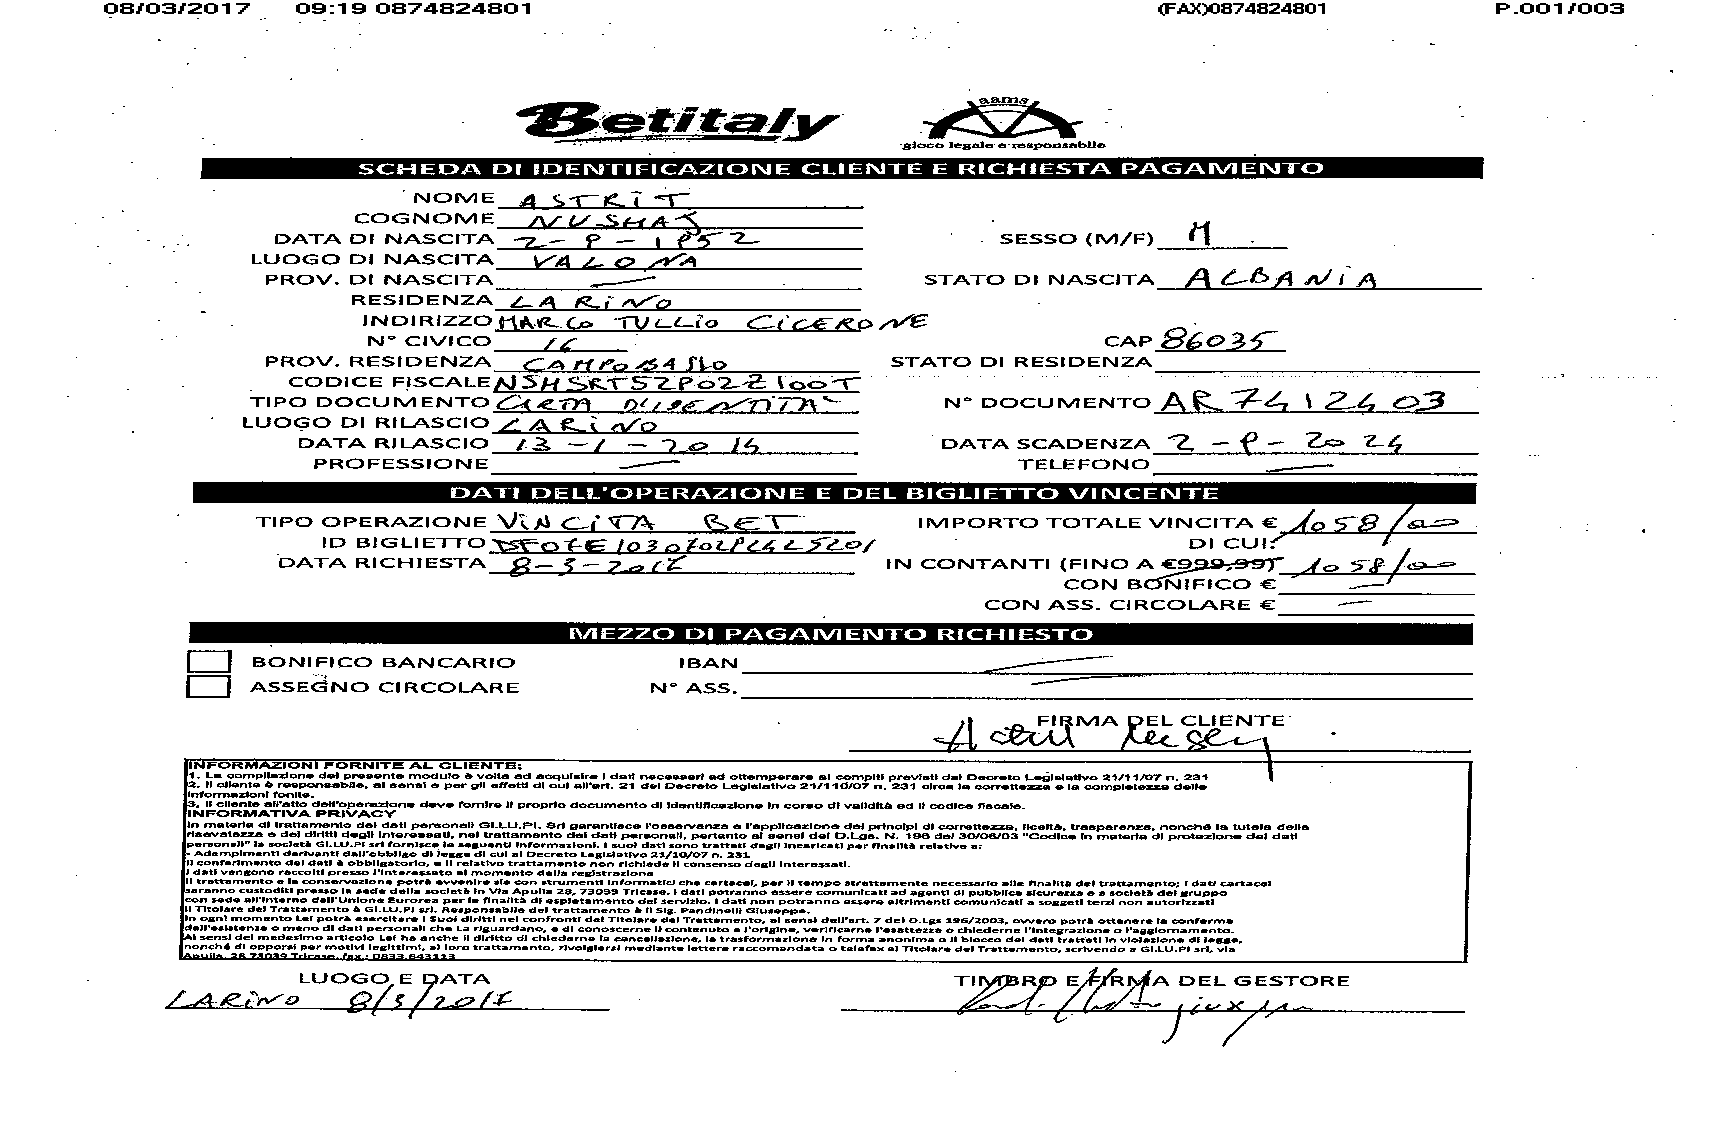 08/03/2017 09:19 0874824801 (FAX)0874824801 P.001/003
Betitaly
aams
gioco legale e responsabile
SCHEDA DI IDENTIFICAZIONE CLIENTE E RICHIESTA PAGAMENTO
NOME ASTRiT
COGNOME NUSHAJ
DATA DI NASCITA 2-9-1952 SESSO (M/F) M
LUOGO DI NASCITA VALONA
PROV. DI NASCITA — STATO DI NASCITA ALBANiA
RESIDENZA LARiNO
INDIRIZZO MARCO TULLiO CiCERONE
N° CIVICO 16 CAP 86035
PROV. RESIDENZA CAMPOBASSO STATO DI RESIDENZA
CODICE FISCALE NSHSRT52P02Z100T
TIPO DOCUMENTO CARTA D'IDENTITA' N° DOCUMENTO AR7412403
LUOGO DI RILASCIO LARiNO
DATA RILASCIO 13-1-2014 DATA SCADENZA 2-9-2024
PROFESSIONE — TELEFONO —
DATI DELL'OPERAZIONE E DEL BIGLIETTO VINCENTE
TIPO OPERAZIONE ViNCiTA BET IMPORTO TOTALE VINCITA € 1058/00
ID BIGLIETTO DI CUI:
DATA RICHIESTA 8-3-2017 IN CONTANTI (FINO A €999,99) 1058/00
CON BONIFICO € —
CON ASS. CIRCOLARE € —
MEZZO DI PAGAMENTO RICHIESTO
BONIFICO BANCARIO IBAN —
ASSEGNO CIRCOLARE N° ASS. —
FIRMA DEL CLIENTE
INFORMAZIONI FORNITE AL CLIENTE:
1. La compilazione del presente modulo è volta ad acquisire i dati necessari ad ottemperare ai compiti previsti dal Decreto Legislativo 21/11/07 n. 231
2. Il cliente è responsabile, ai sensi e per gli effetti di cui all'art. 21 del Decreto Legislativo 21/110/07 n. 231 circa la correttezza e la completezza delle
informazioni fonite.
3. Il cliente all'atto dell'operazione deve fornire il proprio documento di identificazione in corso di validità ed il codice fiscale.
INFORMATIVA PRIVACY
In materia di trattamento dei dati personali GI.LU.PI. Srl garantisce l'osservanza e l'applicazione dei principi di correttezza, liceità, trasparenza, nonché la tutela della
riservatezza e dei diritti degli interessati, nel trattamento dei dati personali, pertanto ai sensi del D.Lgs. N. 196 del 30/06/03 "Codice in materia di protezione dei dati
personali" la società GI.LU.PI srl fornisce le seguenti informazioni. I suoi dati sono trattati dagli incaricati per finalità relative a:
- Adempimenti derivanti dall'obbligo di legge di cui al Decreto Legislativo 21/10/07 n. 231
Il conferimento dei dati è obbligatorio, e il relativo trattamento non richiede il consenso degli interessati.
I dati vengono raccolti presso l'interessato al momento della registrazione
Il trattamento e la conservazione potrà avvenire sia con strumenti informatici che cartacei, per il tempo strettamente necessario alle finalità del trattamento; i dati cartacei
saranno custoditi presso la sede della società in Via Apulia 28, 73099 Tricase. I dati potranno essere comunicati ad agenti di pubblica sicurezza e a società del gruppo
con sede all'interno dell'Unione Europea per le finalità di espletamento del servizio. I dati non potranno essere altrimenti comunicati a soggetti terzi non autorizzati
Il Titolare del Trattamento è GI.LU.PI srl. Responsabile del trattamento è il Sig. Pandinelli Giuseppe.
In ogni momento Lei potrà esercitare i Suoi diritti nei confronti del Titolare del Trattamento, ai sensi dell'art. 7 del D.Lgs 196/2003, ovvero potrà ottenere la conferma
dell'esistenza o meno di dati personali che La riguardano, e di conoscerne il contenuto e l'origine, verificarne l'esattezza o chiederne l'integrazione o l'aggiornamento.
Ai sensi del medesimo articolo Lei ha anche il diritto di chiederne la cancellazione, la trasformazione in forma anonima o il blocco dei dati trattati in violazione di legge,
nonché di opporsi per motivi legittimi, al loro trattamento, scrivendo a GI.LU.PI srl, via
Apulia, 28 73039 Tricase, fax.: 0833.643113
LUOGO E DATA TIMBRO E FIRMA DEL GESTORE
LARiNO 8/3/2017